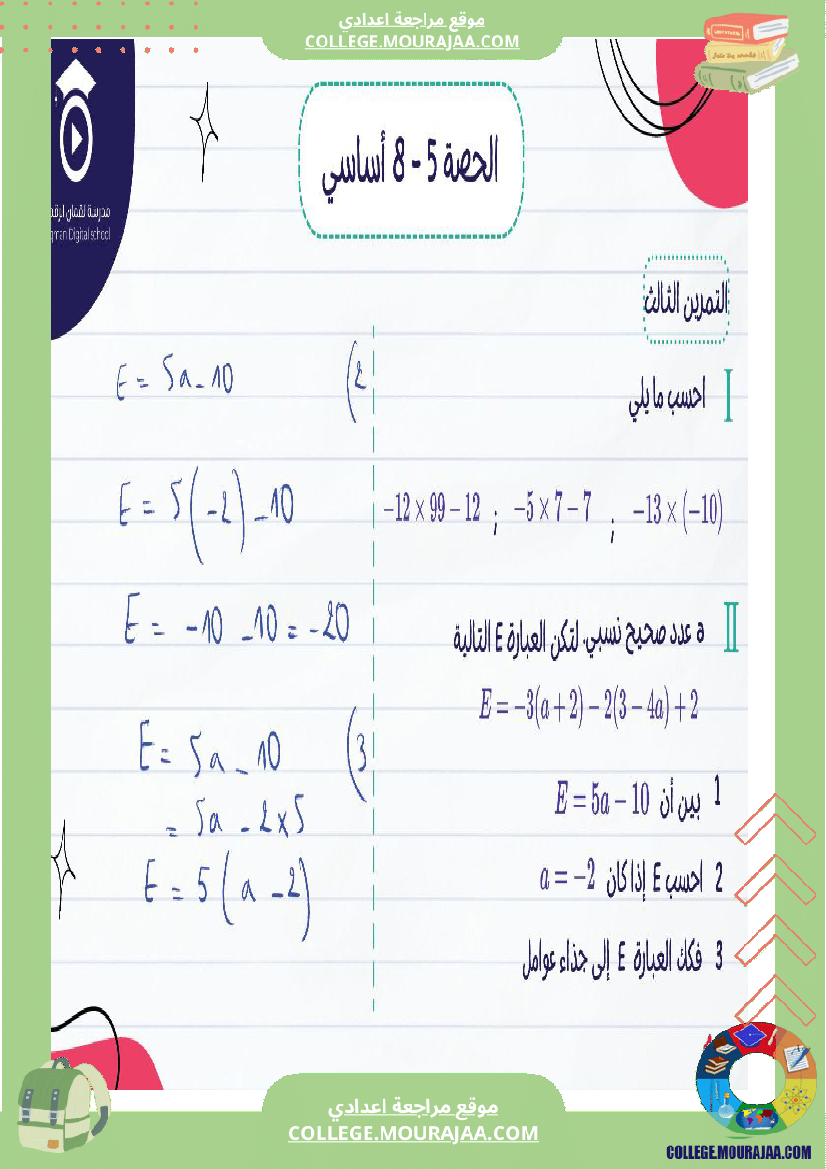 موقع مراجعة اعدادي
COLLEGE.MOURAJAA.COM
الحصة 5 - 8 أساسي
Digital school
التمرين الثالث
I احسب ما يلي
-13 × (-10) ; -5 × 7 - 7 ; -12 × 99 - 12
II a عدد صحيح نسبي. لتكن العبارة E التالية
E = -3(a + 2) - 2(3 - 4a) + 2
1 بين أن E = 5a - 10
2 احسب E إذا كان a = -2
3 فكك العبارة E إلى جذاء عوامل
2) E = 5a - 10
E = 5(-2) - 10
E = -10 - 10 = -20
3) E = 5a - 10
= 5a - 2×5
E = 5(a - 2)
موقع مراجعة اعدادي
COLLEGE.MOURAJAA.COM
COLLEGE.MOURAJAA.COM